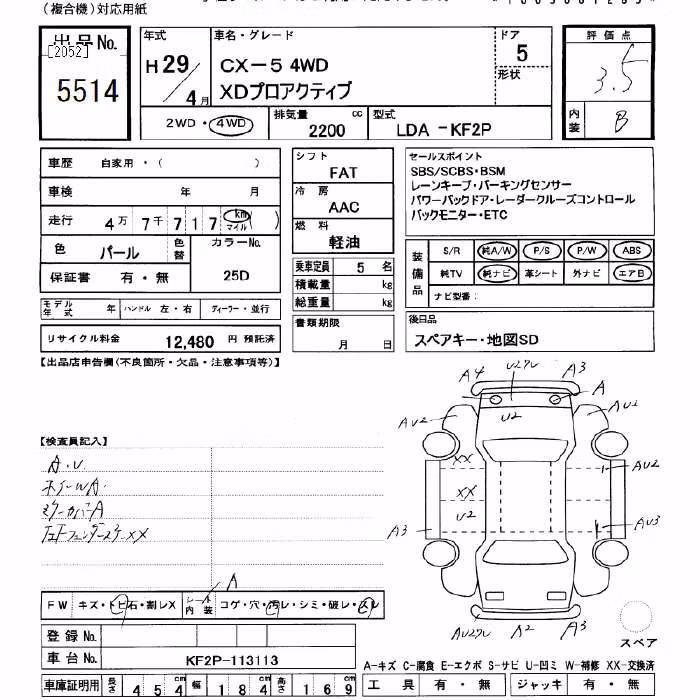 (複合機)対応用紙
出品No.
[2052]
5514
年式
H 29 / 4月
車名・グレード
CX-5 4WD
XDプロアクティブ
ドア
5
形状
評価点
3.5
内装
B
2WD・4WD
排気量
2200 cc
型式
LDA -KF2P
車歴 自家用・( )
車検 年 月
走行 4万 7千 7 1 7 km マイル ( )
色 パール 色替
カラーNo.
25D
保証書 有・無
モデル年式 年 ハンドル 左・右 ディーラー・並行
リサイクル料金 12,480 円 預託済
シフト
FAT
冷房
AAC
燃料
軽油
乗車定員 5 名
積載量 kg
総重量 kg
書類期限
月 日
セールスポイント
SBS/SCBS・BSM
レーンキープ・パーキングセンサー
パワーバックドア・レーダークルーズコントロール
バックモニター・ETC
装備品
S/R 純A/W P/S P/W ABS
純TV 純ナビ 革シート 外ナビ エアB
ナビ型番:
後日品
スペアキー・地図SD
【出品店申告欄(不良箇所・欠品・注意事項等)】
【検査員記入】
A・U
ホイールA
XX
A4
A3
A
U2
AU2
AU2
XX
XX
U2
AU2
A3
AU3
A2
A3
A
FW キズ・トビ石・割レX
シート内装 コゲ・穴・汚レ・シミ・破レ・スレ
登録No.
車台No. KF2P-113113
スペア
A-キズ C-腐食 E-エクボ S-サビ U-凹ミ W-補修 XX-交換済
車庫証明用 長さ 4 5 4 cm 幅 1 8 4 cm 高さ 1 6 9 cm
工具 有・無 ジャッキ 有・無